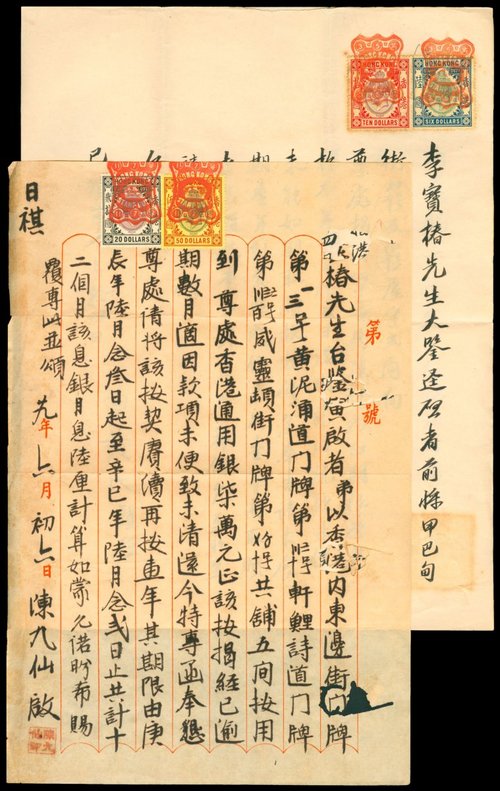 HONG KONG
TEN DOLLARS
HONG KONG
SIX DOLLARS
李寶椿先生大鑒逕啟者前將甲巴甸
HONG KONG
20 DOLLARS
HONG KONG
50 DOLLARS
第 號
椿先生台鑒敬啟者弟以香港内東邊街門牌
第一三号黃泥涌道門牌第 号軒鯉詩道門牌
第 号威靈頓街門牌第 号共舖五間按用
到 尊處香港通用銀柒萬元正該按揭經已逾
期數月適因款項未便致未清還今特專函奉懇
尊處請將該按契賡續再按壹年其期限由庚
辰年陸月念叁日起至辛巳年陸月念弍日止共計十
二個月該息銀月息陸厘計算如蒙允諾盼布賜
覆專此並頌
日祺
九年六月初六日陳九仙啟